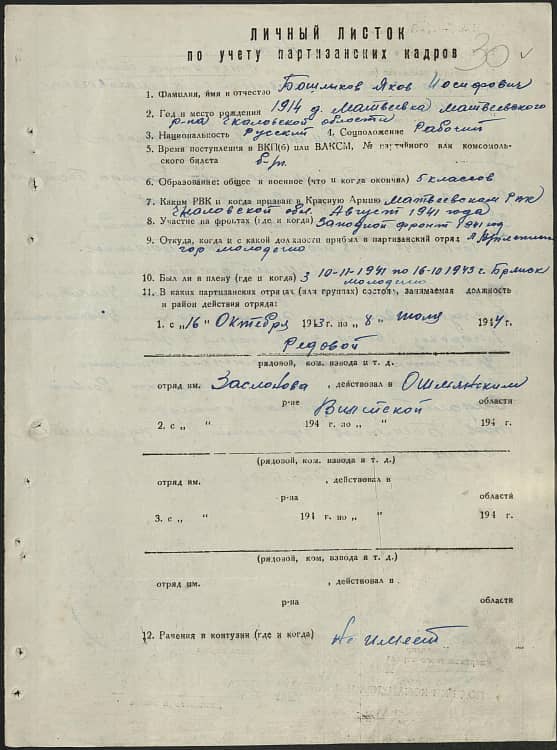 ЛИЧНЫЙ ЛИСТОК
по учету партизанских кадров
30
1. Фамилия, имя и отчество Башлыков Яков Иосифович
2. Год и место рождения 1914 д. Матвеевка Матвеевского
р-на Чкаловской области
3. Национальность Русский 4. Соцположение Рабочий
5. Время поступления в ВКП(б) или ВЛКСМ, № партийного или комсомоль-
ского билета б/п.
6. Образование: общее и военное (что и когда окончил) 5 классов
7. Каким РВК и когда призван в Красную Армию Матвеевским Рвк
Чкаловской обл. Август 1941 года
8. Участие на фронтах (где и когда) Западной фронт 1941 год
9. Откуда, когда и с какой должности прибыл в партизанский отряд
гор молодечно
10. Был ли в плену (где и когда) З 10-11-1941 по 16-10-1943 г. Брянск
молодечно
11. В каких партизанских отрядах (или группах) состоял, занимаемая должность
и район действия отряда:
1. с „16" Октября 1943 г. по „8" июля 1944 г.
Редовой
рядовой, ком. взвода и т. д.
отряд им. Заслонова, действовал в Ошмянским
р-не Вилейской области
2. с „ " 194 г. по „ " 194 г.
(рядовой, ком. взвода и т. д.)
отряд им. , действовал в
р-на области
3. с „ " 194 г. по „ " 194 г.
(рядовой, ком. взвода и т. д.)
отряд им. , действовал в
р-на области
12. Ранения и контузии (где и когда) Не имеет